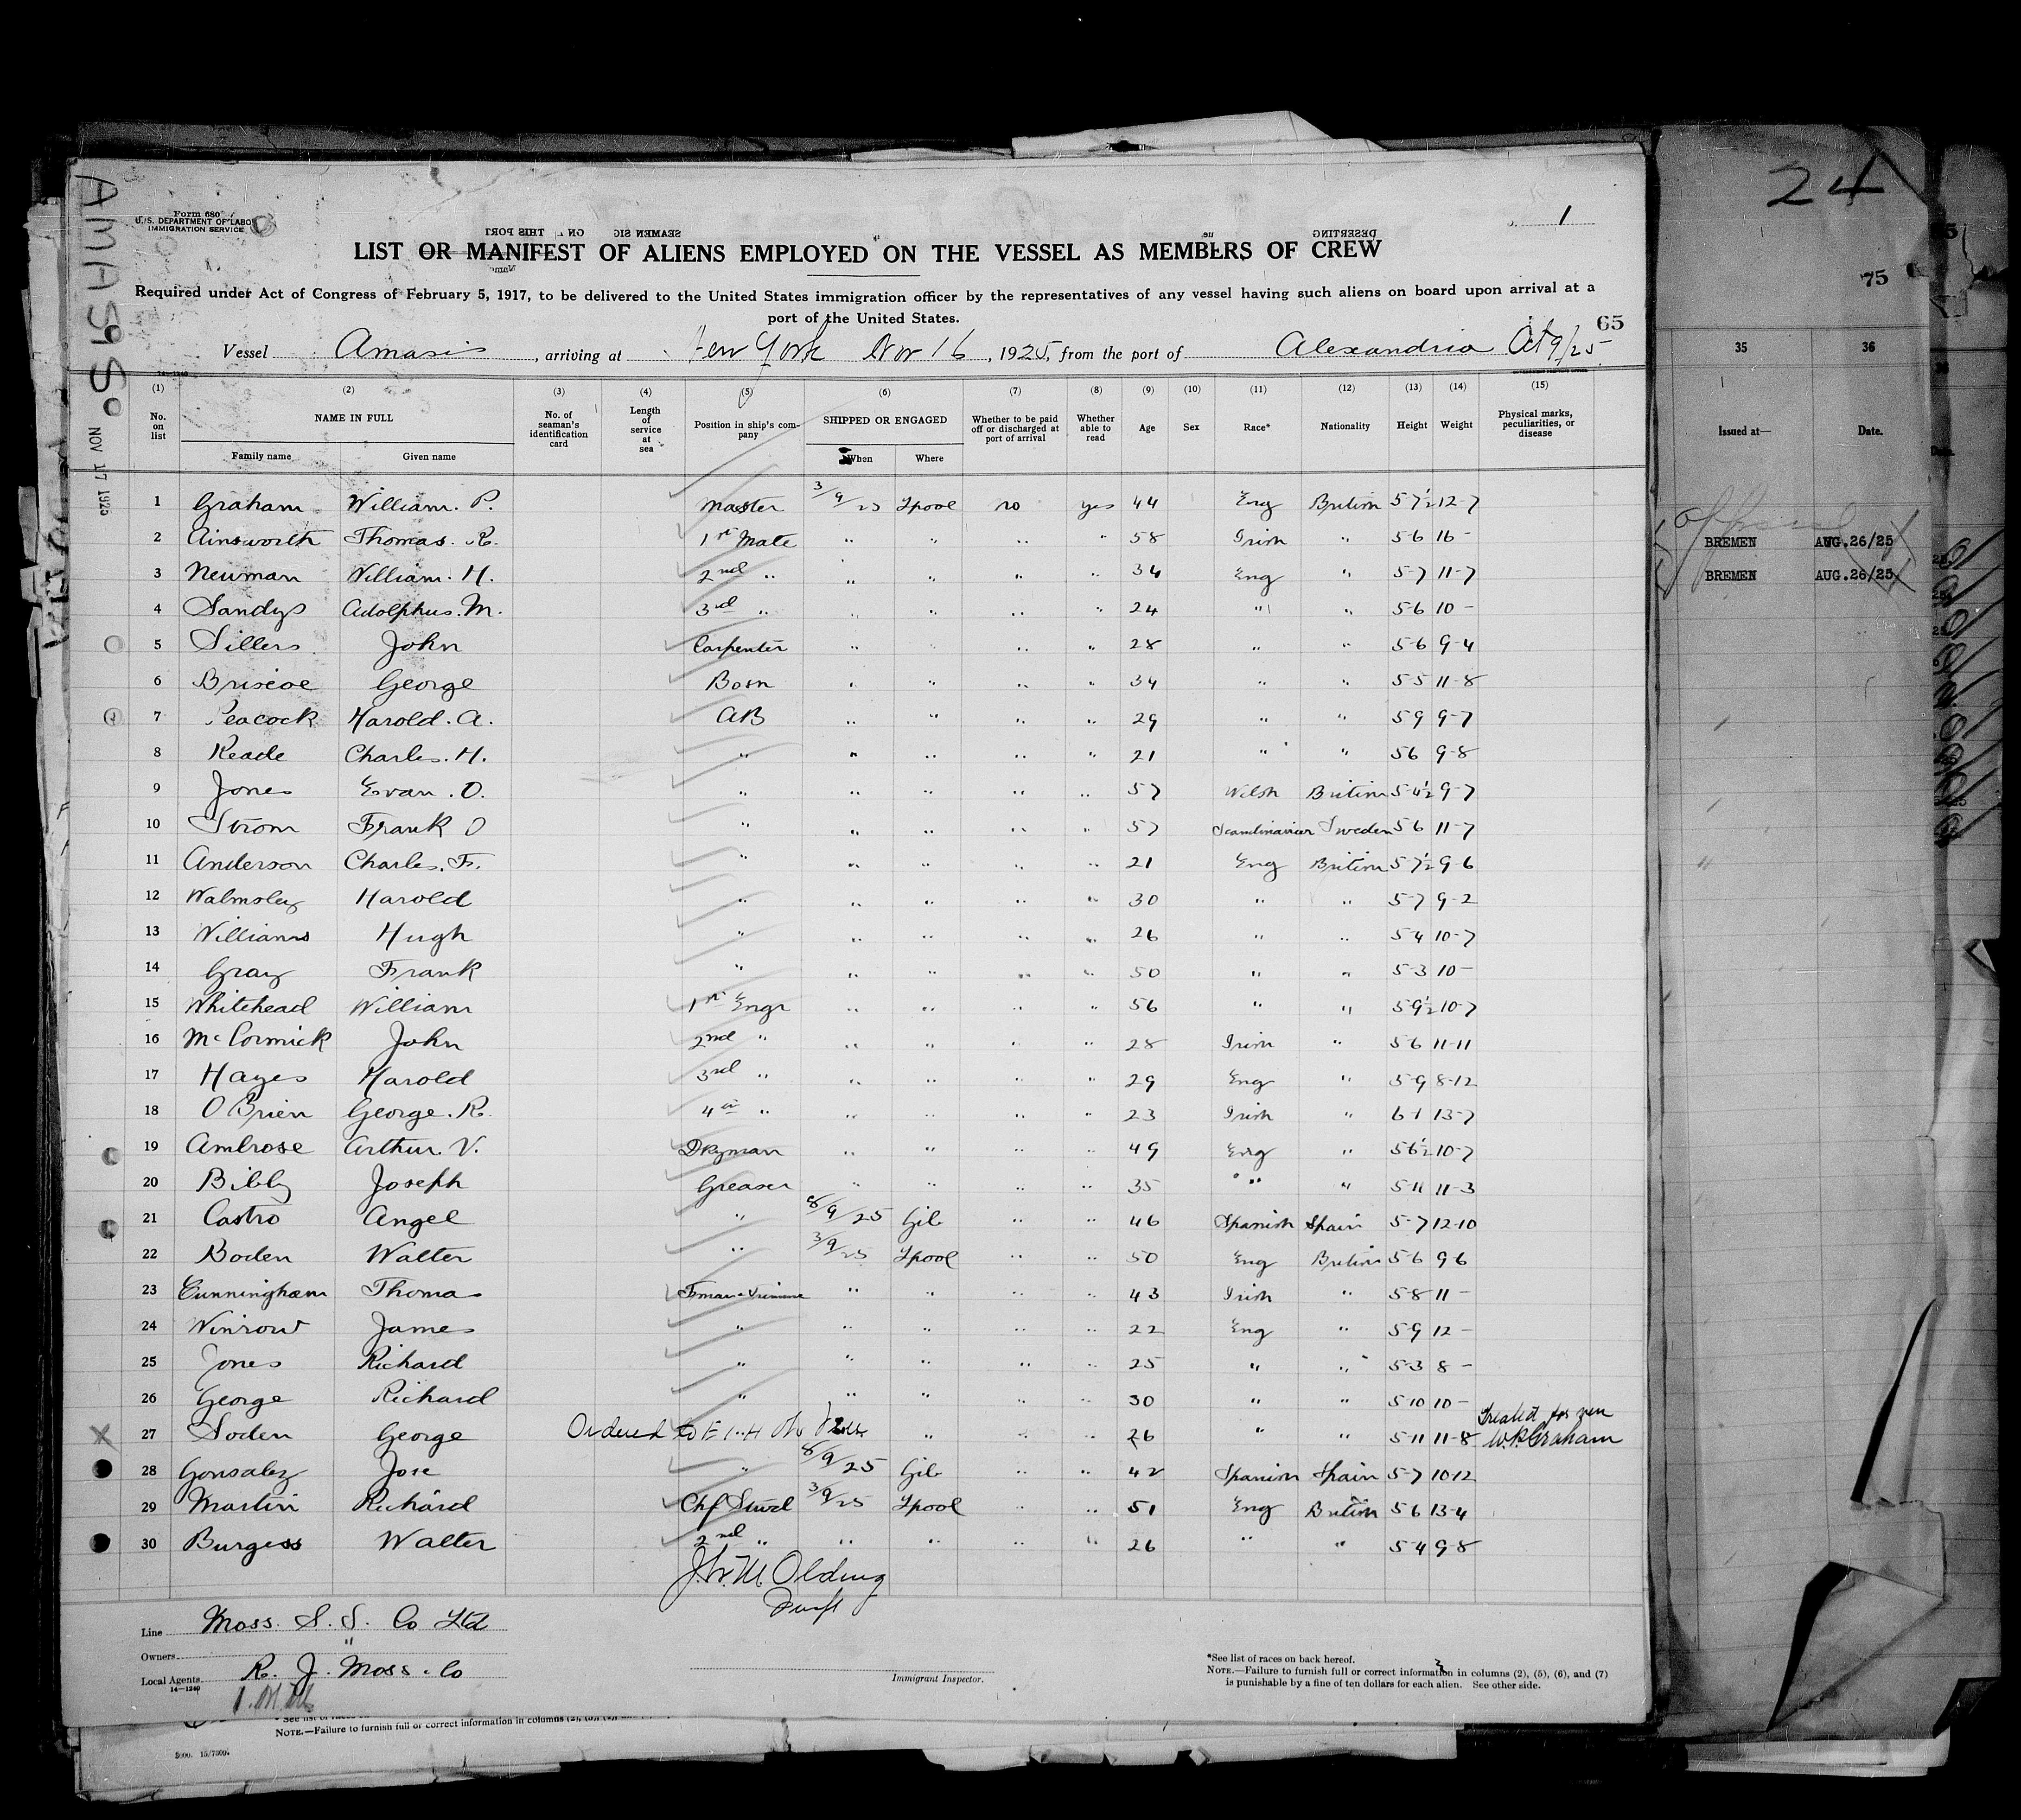 24
Form 680
U.S. DEPARTMENT OF LABOR
IMMIGRATION SERVICE
1
LIST OR MANIFEST OF ALIENS EMPLOYED ON THE VESSEL AS MEMBERS OF CREW
Required under Act of Congress of February 5, 1917, to be delivered to the United States immigration officer by the representatives of any vessel having such aliens on board upon arrival at a
port of the United States.
65
Vessel Amasis, arriving at New York Nov 16, 1925, from the port of Alexandria Oct 9/25
AMASIS
NOV 17 1925
(1) (2) (3) (4) (5) (6) (7) (8) (9) (10) (11) (12) (13) (14) (15)
No. on list NAME IN FULL Family name Given name No. of seaman's identification card Length of service at sea Position in ship's company SHIPPED OR ENGAGED When Where Whether to be paid off or discharged at port of arrival Whether able to read Age Sex Race* Nationality Height Weight Physical marks, peculiarities, or disease
1 Graham William. P. Master 3/9/25 Lpool no yes 44 Eng British 5-7½ 12-7
2 Ainsworth Thomas. R. 1st Mate " " " " 58 Irish " 5-6 16 -
3 Newman William. H. 2nd " " " " " 34 Eng " 5-7 11-7
4 Sandys Adolphus. M. 3rd " " " " " 24 " " 5-6 10 -
5 Sillers John Carpenter " " " " 28 " " 5-6 9-4
6 Briscoe George Bosn " " " " 34 " " 5-5 11-8
7 Peacock Harold. A. AB " " " " 29 " " 5 9 9-7
8 Reade Charles. H. " " " " " 21 " " 5 6 9-8
9 Jones Evan. O. " " " " " 57 Welsh British 5-4½ 9-7
10 Strom Frank O " " " " " 57 Scandinavian Sweden 5 6 11-7
11 Anderson Charles. F. " " " " " 21 Eng British 5-7½ 9-6
12 Walmsley Harold " " " " " 30 " " 5-7 9-2
13 Williams Hugh " " " " " 26 " " 5-4 10-7
14 Gray Frank " " " " " 50 " " 5-3 10 -
15 Whitehead William 1st Engr " " " " 56 " " 5-9½ 10-7
16 McCormick John 2nd " " " " " 28 Irish " 5-6 11-11
17 Hayes Harold 3rd " " " " " 29 Eng " 5-9 8-12
18 O Brien George. R. 4th " " " " " 23 Irish " 6-1 13-7
19 Ambrose Arthur. V. Dkyman " " " " 49 Eng " 5 6½ 10-7
20 Bibby Joseph Greaser " " " " 35 " " 5-11 11-3
21 Castro Angel " 8/9/25 Gib " " 46 Spanish Spain 5-7 12-10
22 Boden Walter " 3/9/25 Lpool " " 50 Eng British 5-6 9 6
23 Cunningham Thomas Fman & Trimmer " " " " 43 Irish " 5-8 11 -
24 Winrow James " " " " " 22 Eng " 5-9 12 -
25 Jones Richard " " " " " 25 " " 5-3 8 -
26 George Richard " " " " " 30 " " 5-10 10 -
27 Soden George Ordered to " " " 26 " " 5-11 11-8 Treated for ven W.P. Graham
28 Gonsalez Jose " 8/9/25 Gib " " 42 Spanish Spain 5-7 10-12
29 Martin Richard Chf Stwd 3/9/25 Lpool " " 51 Eng British 5 6 13-4
30 Burgess Walter 2nd " " " " " 26 " " 5 4 9-8
Olding
Line Moss. S. S. Co Ltd
Owners "
Local Agents R. J. Moss. Co
14—1240
Immigrant Inspector.
*See list of races on back hereof.
NOTE.—Failure to furnish full or correct information in columns (2), (5), (6), and (7)
is punishable by a fine of ten dollars for each alien. See other side.
NOTE.—Failure to furnish full or correct information in columns
75
35 36
Issued at— Date.
BREMEN AUG.26/25
BREMEN AUG.26/25